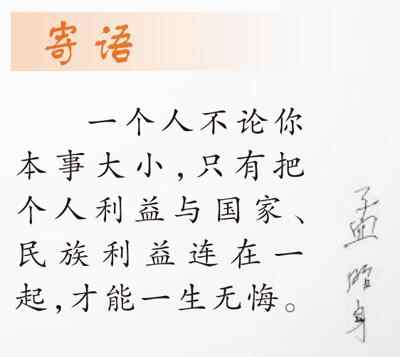 寄语
一个人不论你
本事大小,只有把
个人利益与国家、
民族利益连在一
起,才能一生无悔。
孟昭身